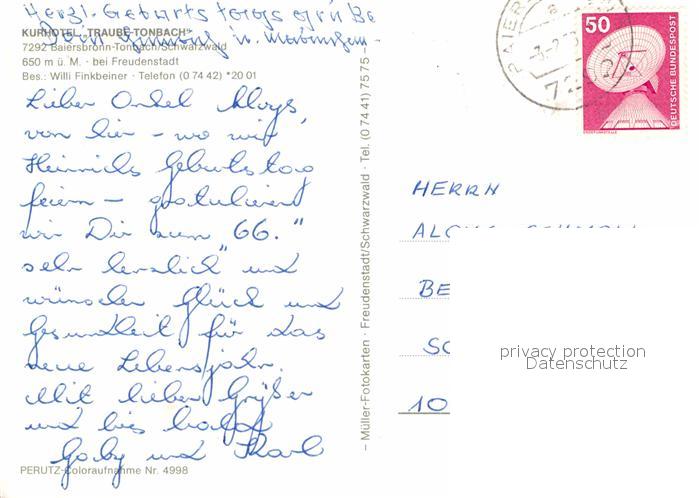 Herzl. Geburtstags
KURHOTEL "TRAUBE-TONBACH"
7292 Baiersbronn-Tonbach/Schwarzwald
650 m ü. M. · bei Freudenstadt
Bes.: Willi Finkbeiner · Telefon (0 74 42) *20 01
Lieber Onkel Aloys,
von hier – wo wir
Heinrichs Geburtstag
feiern – gratulieren
wir Dir zum "66."
sehr herzlich und
wünschen Glück und
Gesundheit für das
neue Lebensjahr.
Mit lieben Grüßen
und bis bald
Gaby und Karl
PERUTZ-Coloraufnahme Nr. 4998
– Müller-Fotokarten · Freudenstadt/Schwarzwald · Tel. (0 74 41) 75 75 –
BAIER
72
50
DEUTSCHE BUNDESPOST
ERDEFUNKSTELLE
HERRN
BE
SC
10
privacy protection
Datenschutz